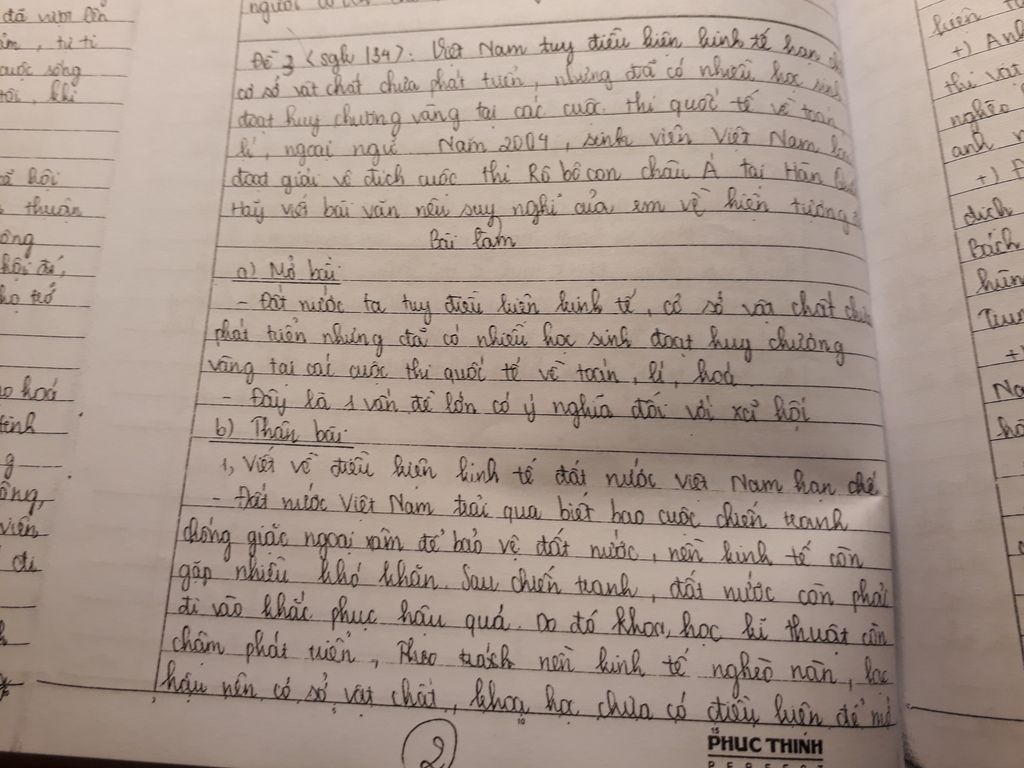 người
Đề 3 (sgk 134): Việt Nam tuy điều kiện kinh tế hạn
cơ sở vật chất chưa phát triển, nhưng đã có nhiều học sinh
đoạt huy chương vàng tại các cuộc thi quốc tế về toán,
lí, ngoại ngữ. Năm 2004, sinh viên Việt Nam
đoạt giải vô địch cuộc thi Rô bô con châu Á tại Hàn
Hãy viết bài văn nêu suy nghĩ của em về hiện tượng
Bài làm
a) Mở bài:
- Đất nước ta tuy điều kiện kinh tế, cơ sở vật chất
phát triển nhưng đã có nhiều học sinh đoạt huy chương
vàng tại các cuộc thi quốc tế về toán, lí, hoá
- Đây là 1 vấn đề lớn có ý nghĩa đối với xã hội
b) Thân bài:
1, Viết về điều kiện kinh tế đất nước Việt Nam hạn chế
- Đất nước Việt Nam trải qua biết bao cuộc chiến tranh
chống giặc ngoại xâm để bảo vệ đất nước, nền kinh tế còn
gặp nhiều khó khăn. Sau chiến tranh, đất nước còn phải
đi vào khắc phục hậu quả. Do đó khoa học kĩ thuật còn
chậm phát triển, nền kinh tế nghèo nàn, lạc
hậu nên cơ sở vật chất, khoa học chưa có điều kiện để
2
PHUC THINH
đã vươn lên
từ ti
cuộc sống
tôi, khi
hội
thuận
hoá
tính
viên
đi
kiện
+) Anh
thi vật
nghèo
anh
+)
địch
Bách
hùng
+